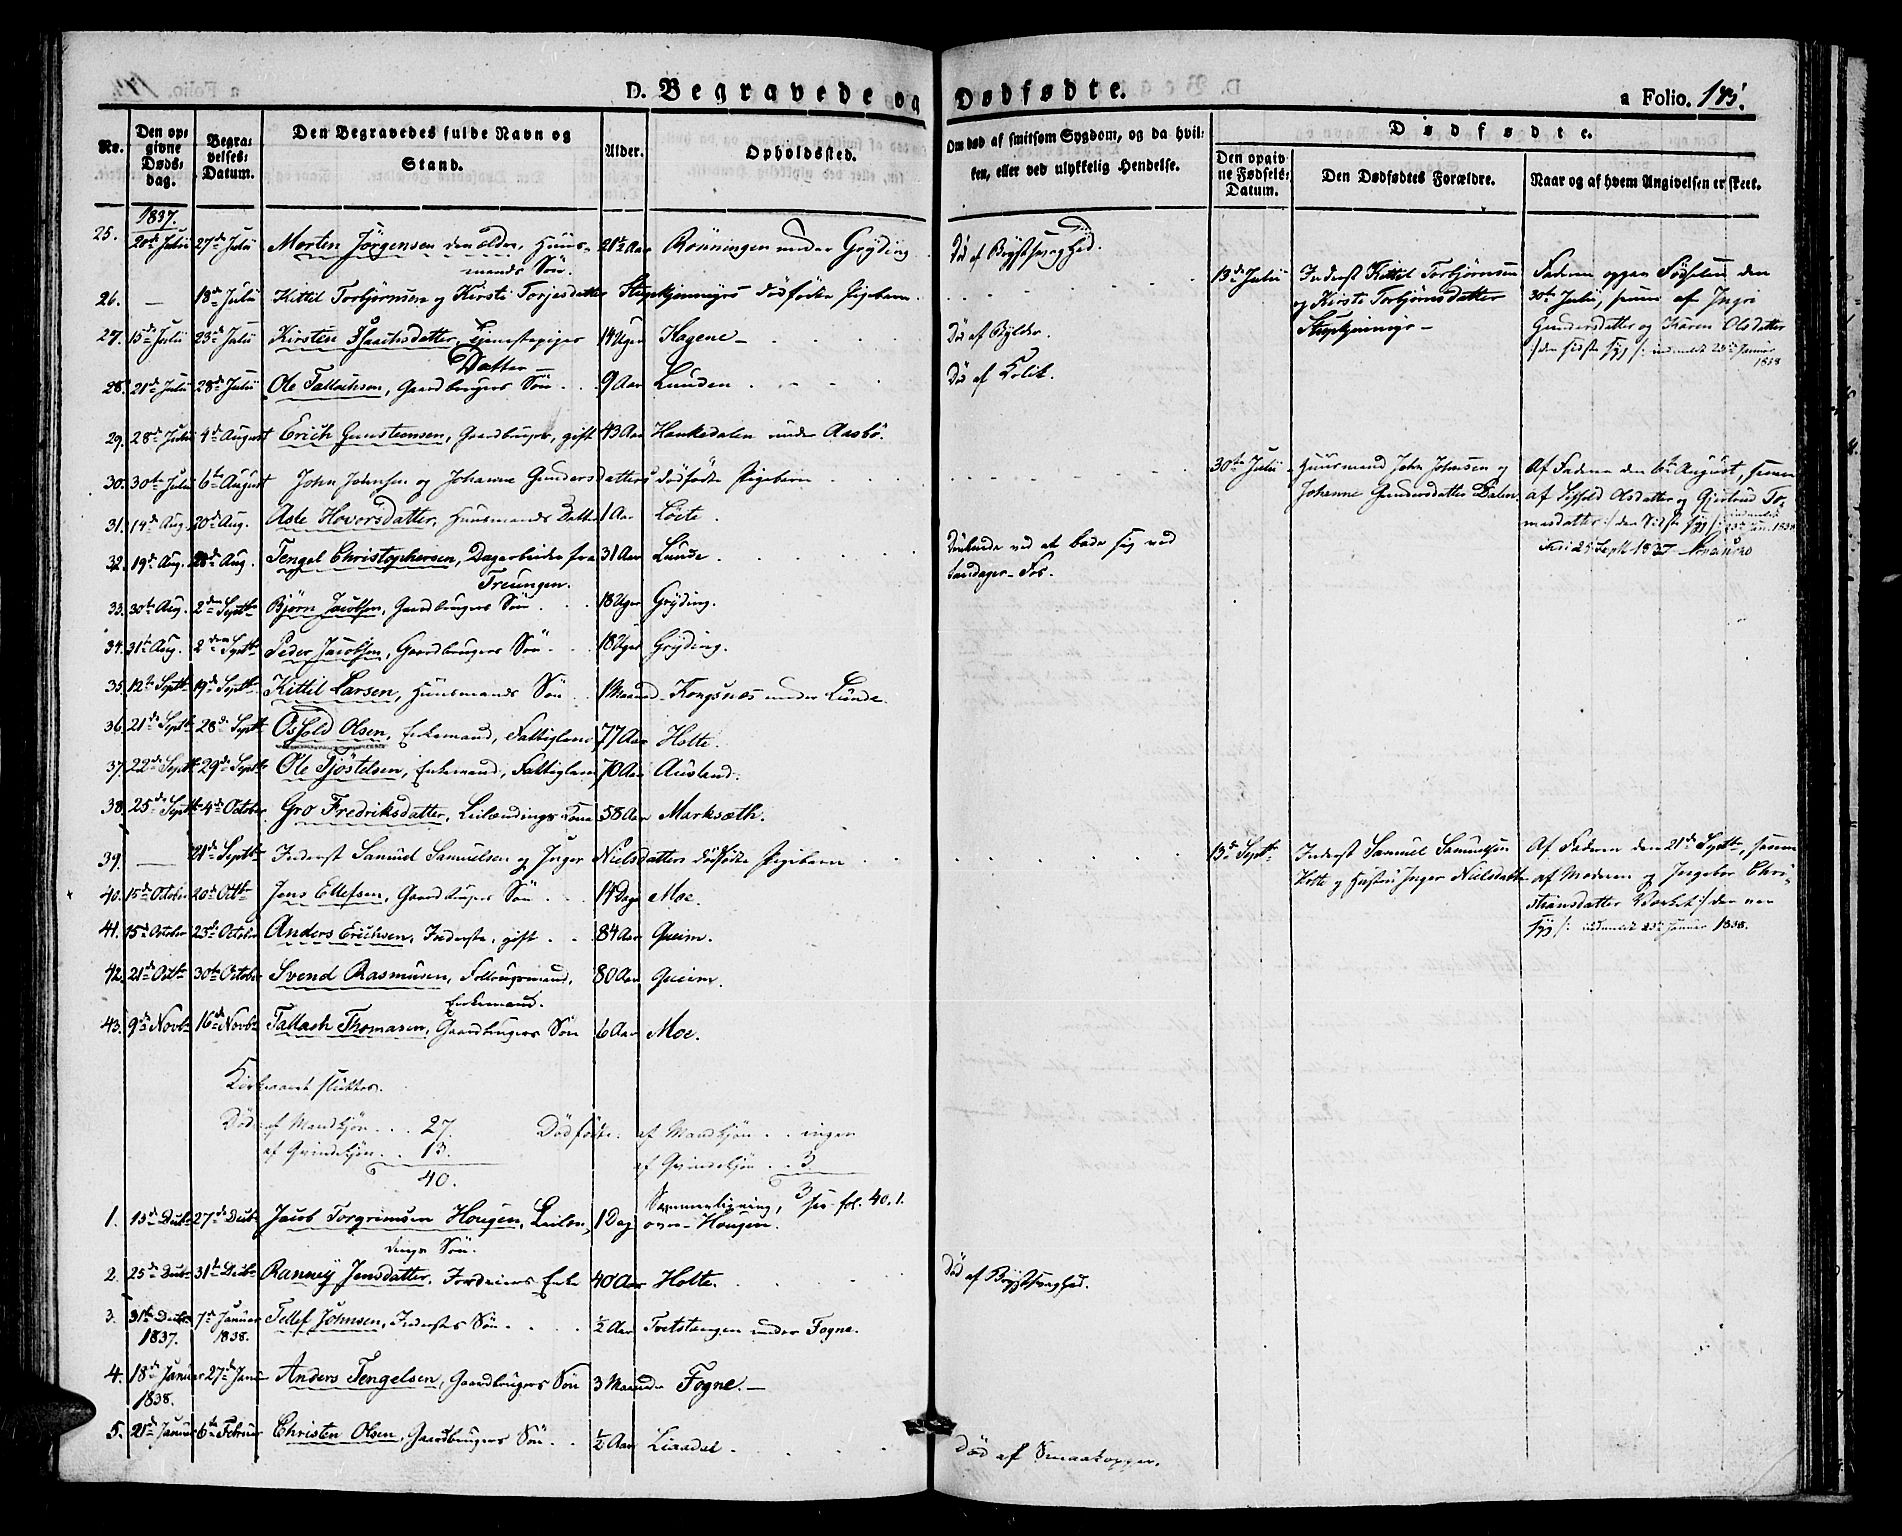 a Folio.
D. Begravede og Dødfødte. a Folio. 145.
No. Den opgivne Dødsdag. Begravelses-Datum. Den Begravedes fulde Navn og Stand. Alder. Opholdssted. Om død af smitsom Sygdom, og da hvilken, eller ved ulykkelig Hendelse. Dødfødte.
Den opgivne Fødsels-Datum. Den Dødfødtes Forældre. Naar og af hvem Angivelsen er skeet.
1837.
25. 20de Julii 27de Julii Morten Jörgensen den ældre, Huusmands Sön. 21½ Aar Rönningen under Gryding Död af Brystsvaghed.
26. — 18de Julii Kittil Torbjörnsen og Kirsti Torjesdatter dödfödte Pigebarn. 13de Julii Inderst Kittil Torbjörnsen
og Kirsti Torbjörnsdatter
Faderen opgav Födselen den
30te Julii, af Ingri
Gundersdatter og Karen Olsdatter
/: den sidste syg :/ indmeldt 23de Januar
1838
27. 15de Julii 23de Julii Kirsten Isaachsdatter, Tjenestepiges
Datter — 14 Uger Hagene — Död af Bylder.
28. 21de Julii 28de Julii Ole Tallachsen, Gaardbrugers Sön 9 Aar Lunden Död af Kolik.
29. 28de Julii 4de August Erich Gunsteensen, Gaardbruger, gift 43 Aar Hankedalen under Aasbö.
30. 30te Julii 6te August John Johnsen og Johanne Gundersdatters dödfödte Pigebarn 30te Julii Huusmand John Johnsen og
Johanne Gundersdatter Dalen
Af Faderen den 6te August, samt
af Olsdatter og Gjertrud Tomasdatter /: den sidste syg :/
25 Septb 1837
31. 14de Aug. 20de Aug. Aste Hovorsdatter, Huusmands Datter 1 Aar Löite.
32. 19de Aug. 28de Aug. Tengel Christophersen, Dagarbeider fra
Treungen. 31 Aar Lunde. Druknede ved at bade sig ved
Fos.
33. 30te Aug. 2den Septbr Björn Jacobsen, Gaardbrugers Sön 18 Uger Gryding.
34. 31te Aug. 2den Septbr Peder Jacobsen, Gaardbrugers Sön 18 Uger Gryding.
35. 12te Septbr 19de Septbr Kittil Larsen, Huusmands Sön 1 Maaned Kongsnæs under Lunde.
36. 21de Septbr 28de Septbr Osfold Olsen, Enkemand, Fattiglem 77 Aar Holte.
37. 22de Septbr 29de Septbr Ole Tjöstelsen, Enkemand, Fattiglem 70 Aar Ausland.
38. 25de Septbr 4de October Gro Fredriksdatter, Leilændings Kone 58 Aar Marksæth.
39. — 21de Septbr Inderst Samuel Samuelsen og Inger Nielsdatters dödfödte Pigebarn 13de Septbr Inderst Samuel Samuelsen
Holte og Hustru Inger Nielsdatter
Af Faderen den 21de Septbr, samt
af Moderen og Ingebor Christiansdatter /: den var
syg :/ indmeldt 23de Januar 1838.
40. 15de October 20de Octbr Jens Ellefsen, Gaardbrugers Sön 14 Dage Moe.
41. 15de October 23de October Anders Erichsen, Inderste, gift 84 Aar Gueim.
42. 21de Octbr 30te October Svend Rasmusen, Follaugsmand,
Enkemand. 80 Aar Gueim.
43. 9de Novbr 16de Novbr Tallach Thomasen, Gaardbrugers Sön 6 Aar Moe.
Kirkeaaret sluttes.
Död af Mandkjön 27. Dödfödte. af Mandkjön ingen
af Qvindekjön 13. af Qvindekjön 3
40. 3
Sammenligning, see fol. 40. 1.
1. 13de Decbr 27de Decbr Jacob Torgrimsen Hougen, Leilændings Sön. 1 Dag Hougen.
2. 25de Decbr 31te Decbr Ranney Jensdatter, Enke 40 Aar Holte. Död af Brystsvaghed.
3. 31te Decbr
1837. 7de Januar
1838. Tellef Johnsen, Inderstes Sön ½ Aar Tvetstangen under Fogne.
4. 18de Januar
1838. 27de Janu Anders Tengelsen, Gaardbrugers Sön 3 Maaneder Fogne. —
5. 21de Januar 6te Februar Christen Olsen, Gaardbrugers Sön ½ Aar Liaadal Död af Smaakopper.